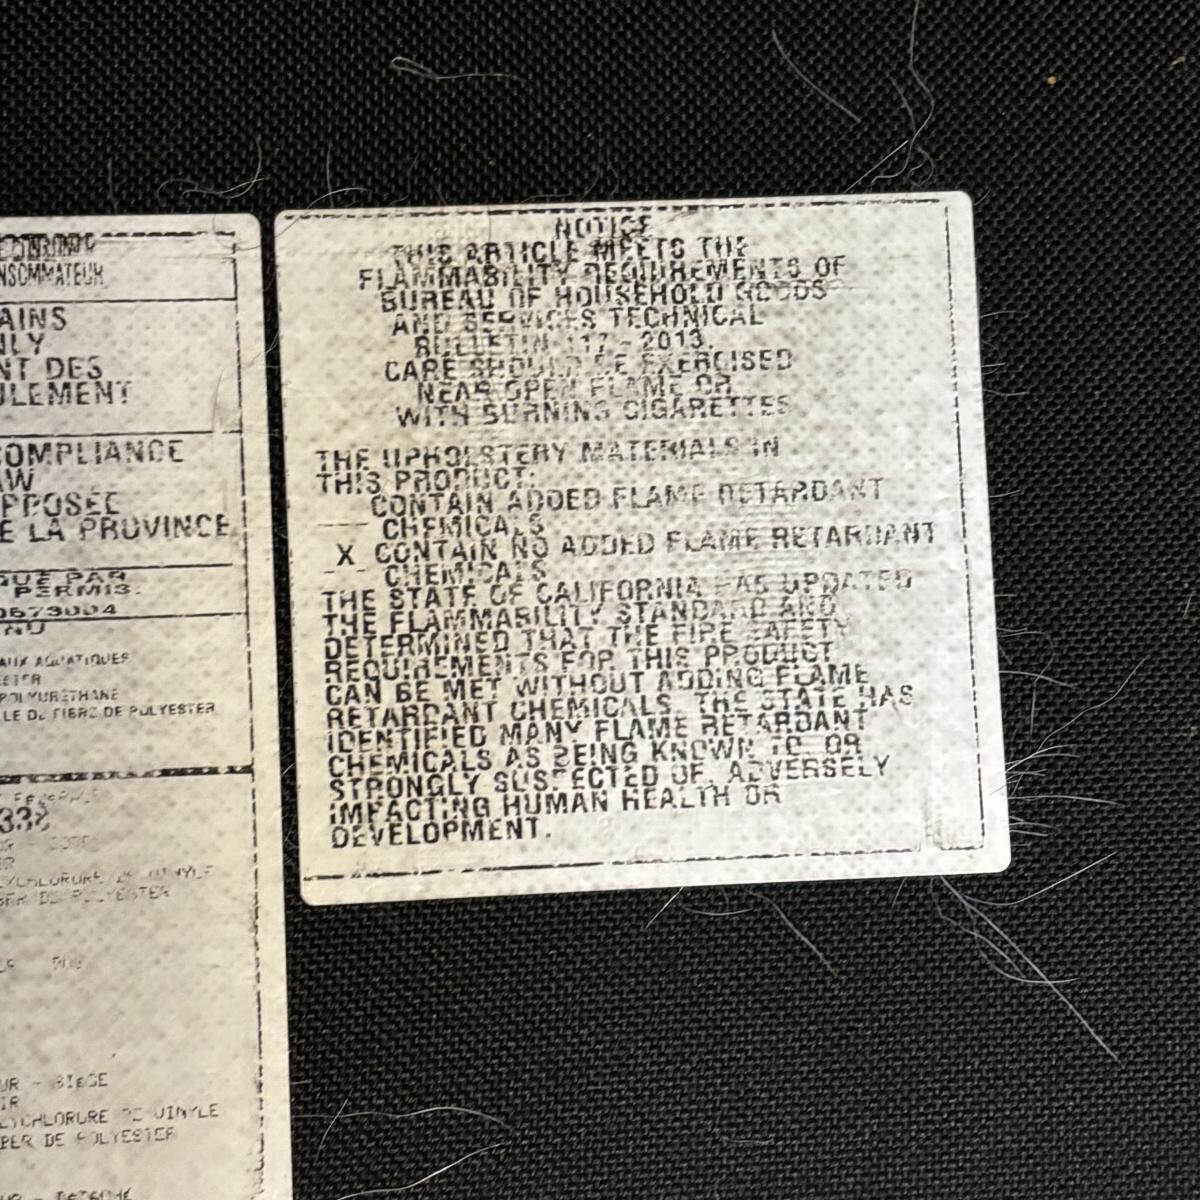 NSOMMATEUR
AINS
NLY
NT DES
ULEMENT
COMPLIANCE
AW
PPOSÉE
E LA PROVINCE
QUÉ PAR
PERMIS.
0673004
NU
AUX AQUATIQUES
ESTER
POLYURÉTHANE
LLE DE FIBRE DE POLYESTER
338
LYCHLORURE DE VINYLE
BER DE POLYESTER
UR - SIEGE
IR
LYCHLORURE DE VINYLE
BER DE POLYESTER
NOTICE
THIS ARTICLE MEETS THE
FLAMMABILITY REQUIREMENTS OF
BUREAU OF HOUSEHOLD GOODS
AND SERVICES TECHNICAL
BULLETIN 117 - 2013.
CARE SHOULD BE EXERCISED
NEAR OPEN FLAME OR
WITH BURNING CIGARETTES
THE UPHOLSTERY MATERIALS IN
THIS PRODUCT:
CONTAIN ADDED FLAME RETARDANT
CHEMICALS
X CONTAIN NO ADDED FLAME RETARDANT
CHEMICALS
THE STATE OF CALIFORNIA HAS UPDATED
THE FLAMMABILITY STANDARD AND
DETERMINED THAT THE FIRE SAFETY
REQUIREMENTS FOR THIS PRODUCT
CAN BE MET WITHOUT ADDING FLAME
RETARDANT CHEMICALS. THE STATE HAS
IDENTIFIED MANY FLAME RETARDANT
CHEMICALS AS BEING KNOWN TO, OR
STRONGLY SUSPECTED OF, ADVERSELY
IMPACTING HUMAN HEALTH OR
DEVELOPMENT.